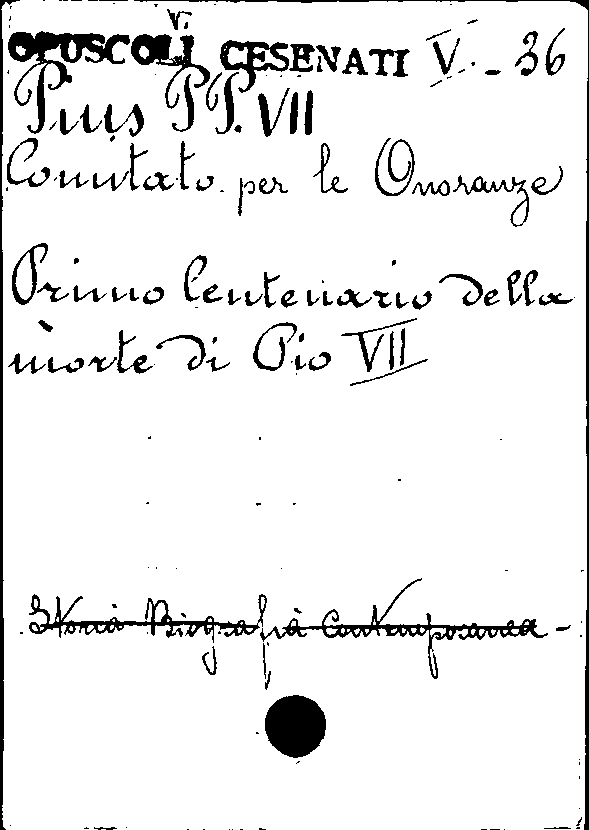 V.
OPUSCOLI CESENATI V. - 36
Pius PP. VII
Comitato per le Onoranze
Primo Centenario della
morte di Pio VII
Storia Biografia Contemporanea -